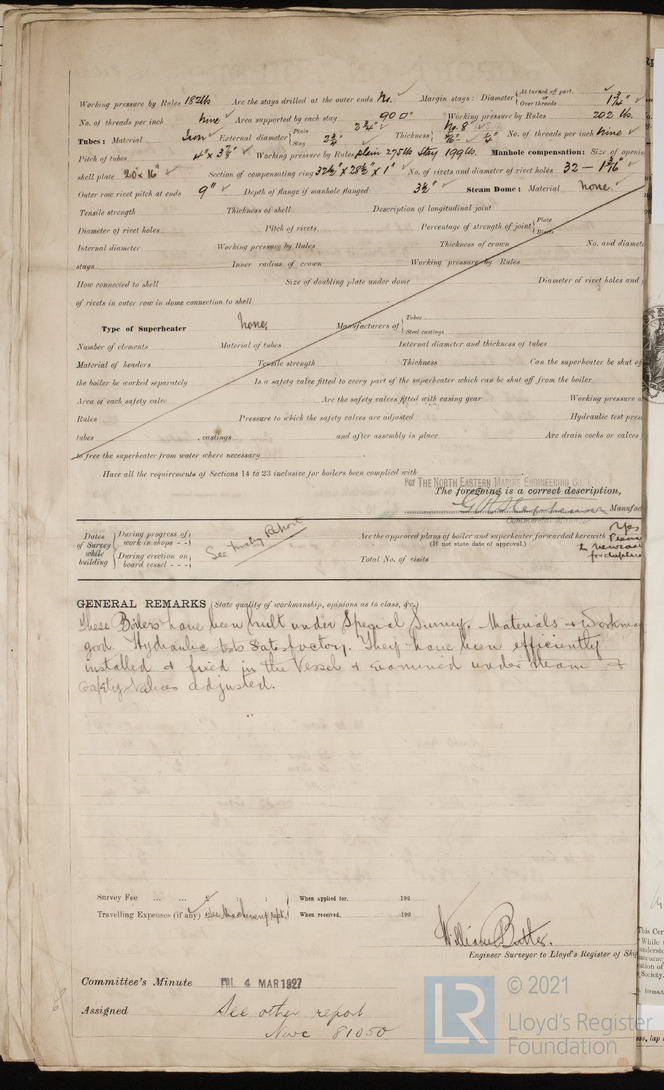 Working pressure by Rules 182 lb Are the stays drilled at the outer ends No. Margin stays: Diameter { At turned off part, or Over threads 1 3/4"
No. of threads per inch nine Area supported by each stay 90 □" Working pressure by Rules 202 lb.
Tubes: Material Iron External diameter { Plain 2 3/4" Stay 2 3/4" Thickness { No. 8 5/16" 1/4" No. of threads per inch nine
Pitch of tubes 4" x 3 7/8" Working pressure by Rules plain 275 lb Stay 199 lb. Manhole compensation: Size of openin
shell plate 20 x 16" Section of compensating ring 32 1/2" x 28 1/2" x 1" No. of rivets and diameter of rivet holes 32 — 1 3/16"
Outer row rivet pitch at ends 9" Depth of flange if manhole flanged 3 1/2" Steam Dome: Material none.
Tensile strength Thickness of shell Description of longitudinal joint
Diameter of rivet holes Pitch of rivets Percentage of strength of joint { Plate Rivets
Internal diameter Working pressure by Rules Thickness of crown No. and diamete
stays Inner radius of crown Working pressure by Rules
How connected to shell Size of doubling plate under dome Diameter of rivet holes and
of rivets in outer row in dome connection to shell
Type of Superheater none Manufacturers of { Tubes Steel castings
Number of elements Material of tubes Internal diameter and thickness of tubes
Material of headers Tensile strength Thickness Can the superheater be shut of
the boiler be worked separately Is a safety valve fitted to every part of the superheater which can be shut off from the boiler
Area of each safety valve Are the safety valves fitted with easing gear Working pressure a
Rules Pressure to which the safety valves are adjusted Hydraulic test pres
tubes , castings and after assembly in place Are drain cocks or valves
to free the superheater from water where necessary
Have all the requirements of Sections 14 to 23 inclusive for boilers been complied with
For THE NORTH EASTERN MARINE ENGINEERING Co. L
The foregoing is a correct description,
Manufac
Commercial Manager
Dates of Survey while building { During progress of work in shops - - } { During erection on board vessel - - - } See Machy Report
Are the approved plans of boiler and superheater forwarded herewith Yes
(If not state date of approval.)
Total No. of visits
GENERAL REMARKS (State quality of workmanship, opinions as to class, &c.)
These Boilers have been built under Special Survey. Materials & Workman
good. Hydraulic tests satisfactory. They have been efficiently
installed & fixed in the Vessel & examined under steam &
Safety Valves adjusted.
Survey Fee ... ... When applied for, 192
Travelling Expenses (if any) See Machinery Rept. When received, 192
William Butler.
Engineer Surveyor to Lloyd's Register of Ship
Committee's Minute FRI. 4 MAR 1927
Assigned See other report
Nwc 81050
© 2021
LR Lloyd's Register
Foundation